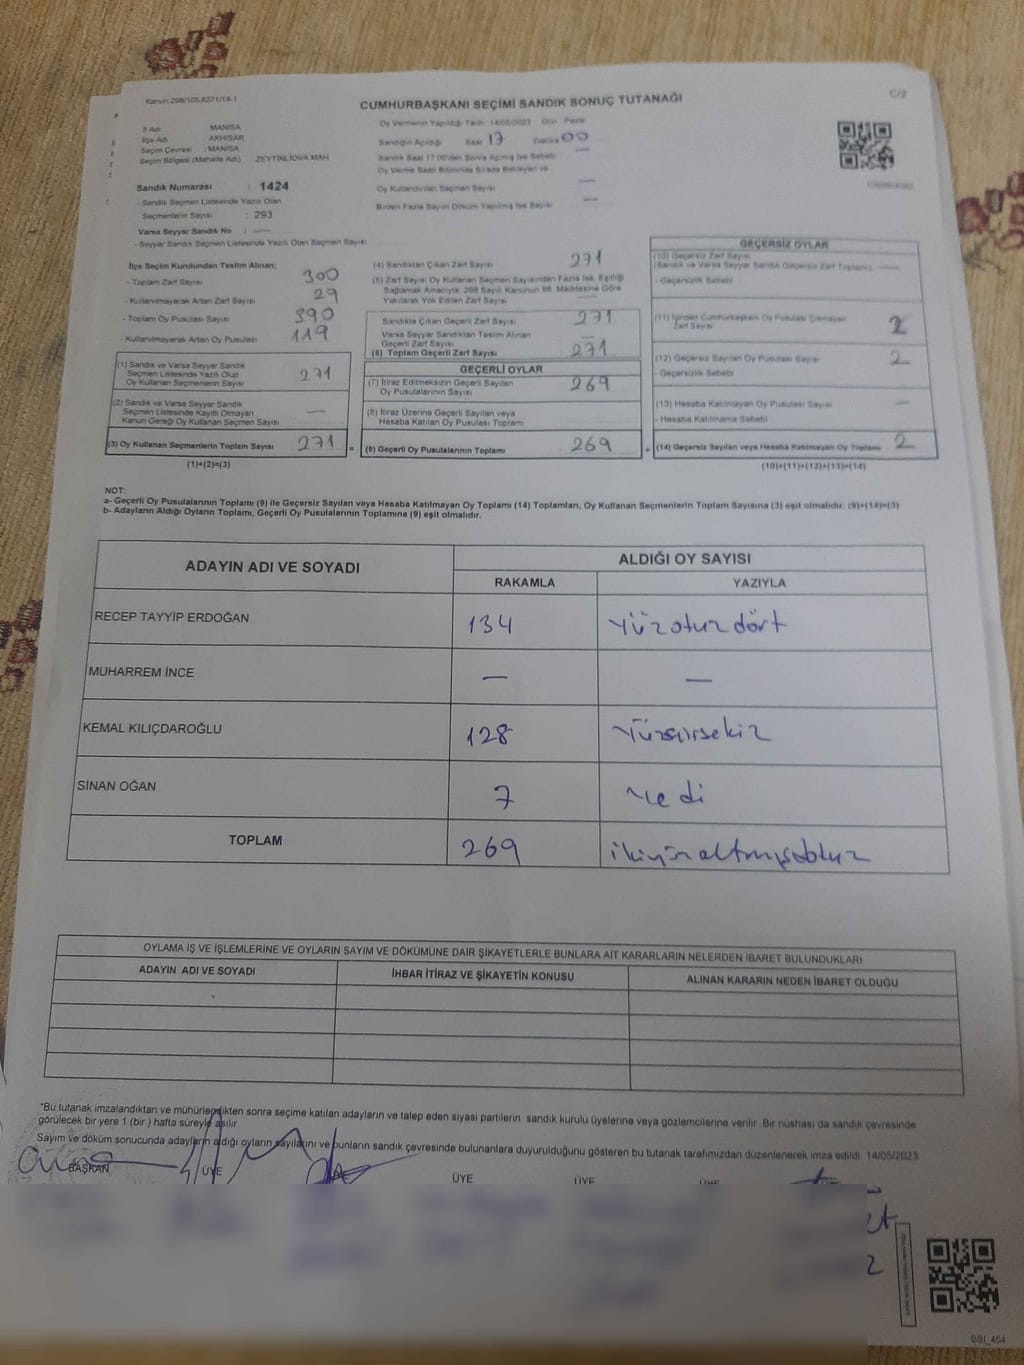 Kanun:298/100,6271/18-1
CUMHURBAŞKANI SEÇİMİ SANDIK SONUÇ TUTANAĞI
C/2
İl Adı MANİSA
İlçe Adı AKHİSAR
Seçim Çevresi : MANİSA
Seçim Bölgesi (Mahalle Adı) ZEYTİNLİOVA MAH
Sandık Numarası : 1424
- Sandık Seçmen Listesinde Yazılı Olan
Seçmenlerin Sayısı : 293
Varsa Seyyar Sandık No : —
- Seyyar Sandık Seçmen Listesinde Yazılı Olan Seçmen Sayısı
Oy Vermenin Yapıldığı Tarih 14/05/2023 Gün Pazar
Sandığın Açıldığı Saat 17 Dakika 00
Sandık Saat 17.00'den Sonra Açılmış İse Sebebi
Oy Verme Saati Bitiminde Sırada Bekleyen ve
Oy Kullandırılan Seçmen Sayısı —
Birden Fazla Sayım Döküm Yapılmış İse Sayısı —
İlçe Seçim Kurulundan Teslim Alınan;
- Toplam Zarf Sayısı 300
- Kullanılmayarak Artan Zarf Sayısı 29
- Toplam Oy Pusulası Sayısı 390
- Kullanılmayarak Artan Oy Pusulası 119
(1) Sandık ve Varsa Seyyar Sandık
Seçmen Listesinde Yazılı Olup
Oy Kullanan Seçmenlerin Sayısı 271
(2) Sandık ve Varsa Seyyar Sandık
Seçmen Listesinde Kayıtlı Olmayan
Kanun Gereği Oy Kullanan Seçmen Sayısı —
(3) Oy Kullanan Seçmenlerin Toplam Sayısı 271
(1)+(2)=(3)
(4) Sandıktan Çıkan Zarf Sayısı 271
(5) Zarf Sayısı Oy Kullanan Seçmen Sayısından Fazla İse, Eşitliği
Sağlamak Amacıyla, 298 Sayılı Kanunun 98. Maddesine Göre
Yakılarak Yok Edilen Zarf Sayısı —
Sandıkta Çıkan Geçerli Zarf Sayısı 271
Varsa Seyyar Sandıktan Teslim Alınan
Geçerli Zarf Sayısı —
(6) Toplam Geçerli Zarf Sayısı 271
GEÇERLİ OYLAR
(7) İtiraz Edilmeksizin Geçerli Sayılan
Oy Pusulalarının Sayısı 269
(8) İtiraz Üzerine Geçerli Sayılan veya
Hesaba Katılan Oy Pusulası Toplamı
= (9) Geçerli Oy Pusulalarının Toplamı 269
GEÇERSİZ OYLAR
(10) Geçersiz Zarf Sayısı
(Sandık ve Varsa Seyyar Sandık Geçersiz Zarf Toplamı) —
- Geçersizlik Sebebi
(11) İçinden Cumhurbaşkanı Oy Pusulası Çıkmayan
Zarf Sayısı 2
(12) Geçersiz Sayılan Oy Pusulası Sayısı 2
- Geçersizlik Sebebi
(13) Hesaba Katılmayan Oy Pusulası Sayısı —
- Hesaba Katılmama Sebebi
+ (14) Geçersiz Sayılan veya Hesaba Katılmayan Oy Toplamı 2
(10)+(11)+(12)+(13)=(14)
NOT:
a- Geçerli Oy Pusulalarının Toplamı (9) ile Geçersiz Sayılan veya Hesaba Katılmayan Oy Toplamı (14) Toplamları, Oy Kullanan Seçmenlerin Toplam Sayısına (3) eşit olmalıdır. (9)+(14)=(3)
b- Adayların Aldığı Oyların Toplamı, Geçerli Oy Pusulalarının Toplamına (9) eşit olmalıdır.
ADAYIN ADI VE SOYADI ALDIĞI OY SAYISI
RAKAMLA YAZIYLA
RECEP TAYYİP ERDOĞAN 134 Yüzotuzdört
MUHARREM İNCE — —
KEMAL KILIÇDAROĞLU 128
SİNAN OĞAN 7 Yedi
TOPLAM 269
OYLAMA İŞ VE İŞLEMLERİNE VE OYLARIN SAYIM VE DÖKÜMÜNE DAİR ŞİKAYETLERLE BUNLARA AİT KARARLARIN NELERDEN İBARET BULUNDUKLARI
ADAYIN ADI VE SOYADI İHBAR İTİRAZ VE ŞİKAYETİN KONUSU ALINAN KARARIN NEDEN İBARET OLDUĞU
*Bu tutanak imzalandıktan ve mühürlendikten sonra seçime katılan adayların ve talep eden siyasi partilerin sandık kurulu üyelerine veya gözlemcilerine verilir. Bir nüshası da sandık çevresinde
görülecek bir yere 1 (bir) hafta süreyle asılır
Sayım ve döküm sonucunda adayların aldığı oyların sayılarını ve bunların sandık çevresinde bulunanlara duyurulduğunu gösteren bu tutanak tarafımızdan düzenlenerek imza edildi. 14/05/2023
BAŞKAN ÜYE ÜYE ÜYE
SSI_404